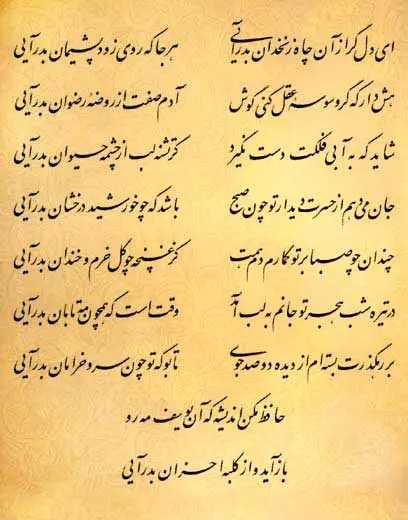 ای دل گر از آن چاه زنخدان بدرآئی هر جا که روی زود پشیمان بدرآیی
هش دار که گر وسوسه عقل کنی گوش آدم صفت از روضه رضوان بدرآیی
شاید که به آبی فلکت دست نگیرد گر تشنه لب از چشمه حیوان بدرآیی
جان می دهم از حسرت دیدار تو چون صبح باشد که چو خورشید درخشان بدرآیی
چندان چو صبا بر تو گمارم دم همت کز غنچه چو گل خرم و خندان بدرآیی
در تیره شب هجر تو جانم به لب آمد وقت است که همچون مه تابان بدرآیی
بر رهگذرت بسته ام از دیده دو صد جوی تا بو که تو چون سرو خرامان بدرآیی
حافظ مکن اندیشه که آن یوسف مه رو
بازآید و از کلبه احزان بدرآیی